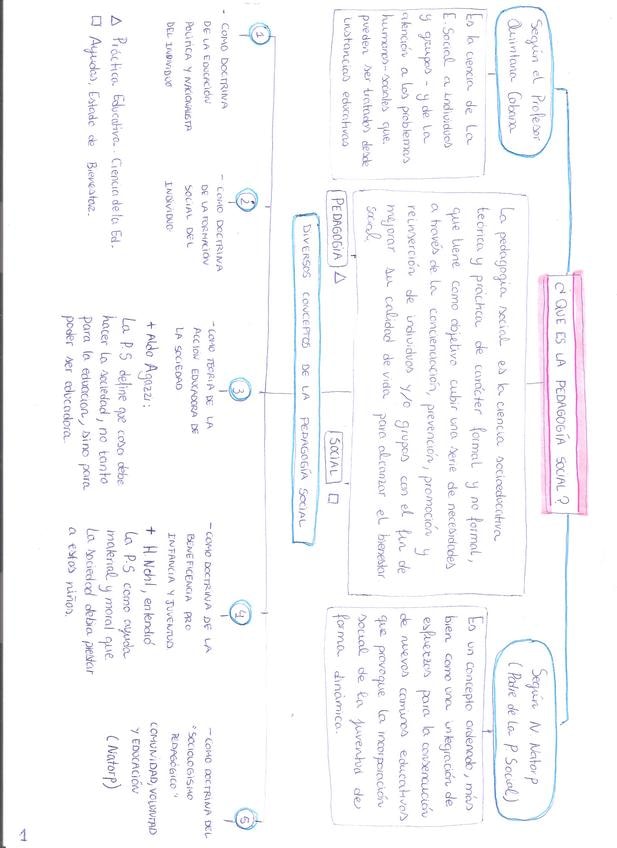 ¿QUE ES LA PEDAGOGÍA SOCIAL?
Según el Profesor
Quintana Cabana
Es la ciencia de la
E. Social a individuos
y grupos - y de la
atención a los problemas
humanos-sociales que
pueden ser tratados desde
instancias educativas
La pedagogía social es la ciencia socioeducativa
teórica y práctica de carácter formal y no formal,
que tiene como objetivo cubir una serie de necesidades
a través de la concienciación, prevención, promoción y
reinserción de individuos y/o grupos con el fin de
mejorar su calidad de vida para alcanzar el bienestar
social.
Según N Natorp
(Padre de la P Social)
Es un concepto ordenado, más
bien como una integración de
esfuerzos para la consecaución
de nuevos caminos educativos
que provoque la incorporación
social de la juventud de
forma dinámica.
PEDAGOGÍA △
SOCIAL □
DIVERSOS CONCEPTOS DE LA PEDAGOGÍA SOCIAL
1
- COMO DOCTRINA
DE LA EDUCACIÓN
POLÍTICA Y NACIONALISTA
DEL INDIVIDUO
2
- COMO DOCTRINA
DE LA FORMACIÓN
SOCIAL DEL
INDIVIDUO
3
- COMO TEORIA DE LA
ACCION EDUCADORA DE
LA SOCIEDAD
+ Aldo Agazzi:
La P.S define que cosa debe
hacer la sociedad, no tanto
para la educacion, sino para
poder ser educadora.
4
- COMO DOCTRINA DE LA
BENEFICENCIA PRO
INFANCIA Y JUVENTUD
+ H. Nohl, entendió
La P.S como ayuda
material y moral que
La sociedad debia prestar
a estos niños.
5
- COMO DOCTRINA DEL
"SOCIOLOGISMO
PEDAGOGICO"
COMUNIDAD, VOLUNTAD
Y EDUCACIÓN
(Natorp)
△ Práctica Educativa. Ciencia de la Ed.
□ Ayudas, Estado de Bienestar.
1